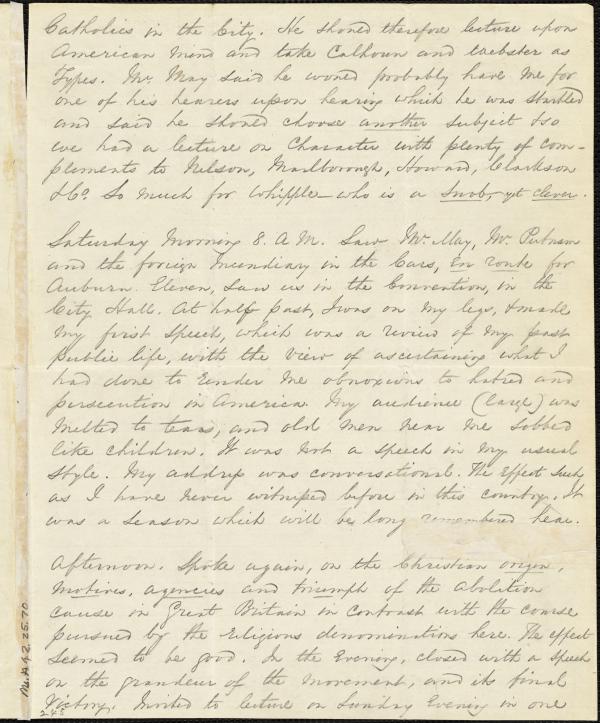 Catholics in the City. He should therefore lecture upon
American mind and take Calhoun and Webster as
Types. Mr. May said he would probably have me for
one of his hearers upon hearing which he was startled
and said he should choose another subject &so
we had a lecture on Character with plenty of com-
plements to Nelson, Marlborough, Howard, Clarkson
&Co. So much for Whipple - who is a Snob, yet clever.
Saturday Morning 8. A M. Saw Mr. May, Mr. Putnam
and the foreign Incendiary in the Cars, En route for
Auburn. Eleven, saw us in the Convention, in the
City Hall. At half past, I was on my legs, & made
my first speech, which was a review of my past
public life, with the view of ascertaining what I
had done to render me obnoxious to hatred and
persecution in America. My audience (large) was
melted to tears, and old men near me sobbed
like children. It was not a speech in my usual
style. My address was conversational. The effect such
as I have never witnessed before in this country. It
was a season which will be long remembered here.
Afternoon. Spoke again, on the Christian origin,
motives, agencies and triumph of the abolition
cause in Great Britain in contrast with the course
pursued by the religious denominations here. The effect
seemed to be good. In the Evening, closed with a speech
on the grandeur of the movement, and its final
Victory. Invited to lecture on Sunday Evening in one